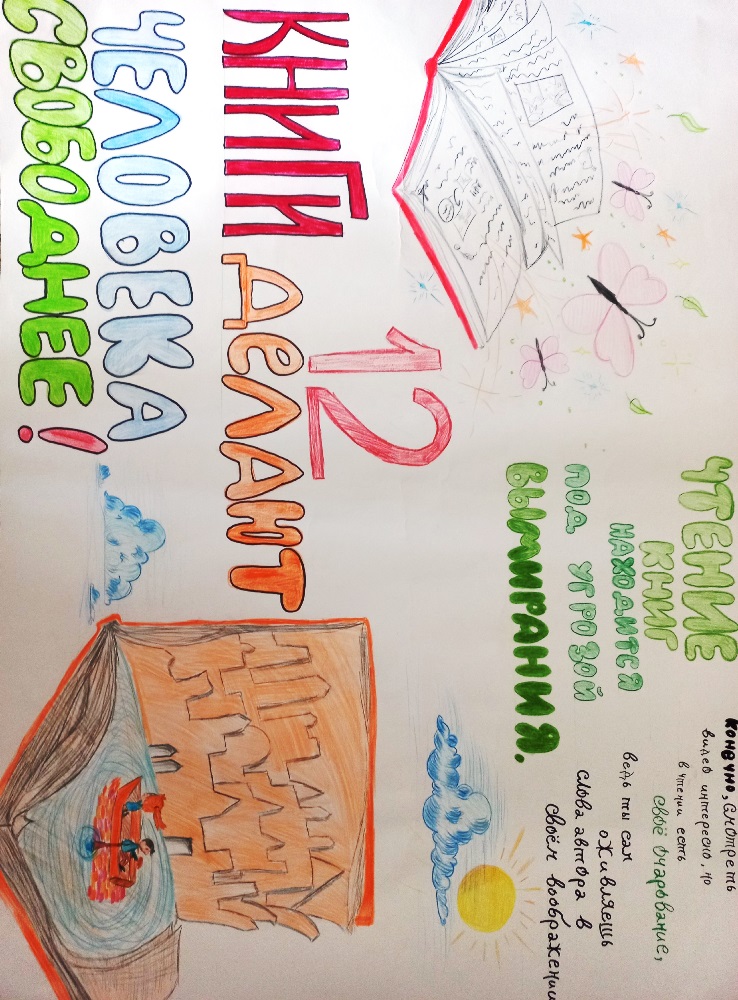 ЧТЕНИЕ
КНИГ
НАХОДИТСЯ
ПОД УГРОЗОЙ
ВЫМИРАНИЯ.
Конечно, смотреть
видео интересно, но
в чтении есть
своё очарование,
ведь ты сам
оживляешь
слова автора в
своём воображении
12
КНИГИ ДеЛАЮТ
ЧЕЛОВЕКА
СВОБОДНЕЕ!